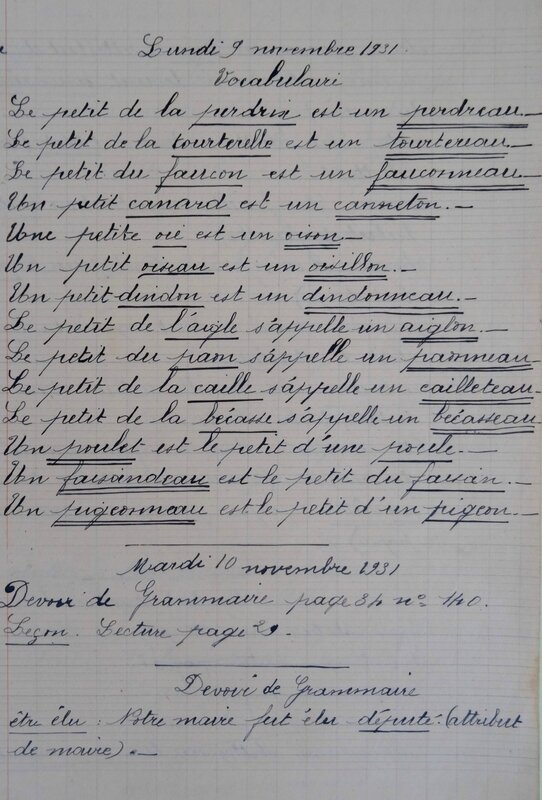 Lundi 9 novembre 1931.
Vocabulaire
Le petit de la perdrix est un perdreau.
Le petit de la tourterelle est un tourtereau.
Le petit du faucon est un fauconneau.
Un petit canard est un canneton.
Une petite oie est un oison.
Un petit oiseau est un oisillon.
Un petit dindon est un dindonneau.
Le petit de l'aigle s'appelle un aiglon.
Le petit du pam s'appelle un pamneau
Le petit de la caille s'appelle un cailleteau.
Le petit de la bécasse s'appelle un bécasseau.
Un poulet est le petit d'une poule.
Un faisandeau est le petit du faisan.
Un pigeonneau est le petit d'un pigeon.
Mardi 10 novembre 1931
Devoir de Grammaire page 84 n° 140.
Leçon. Lecture page 29.
Devoir de Grammaire
être élu : Notre maire fut élu député. (attribut
de maire).